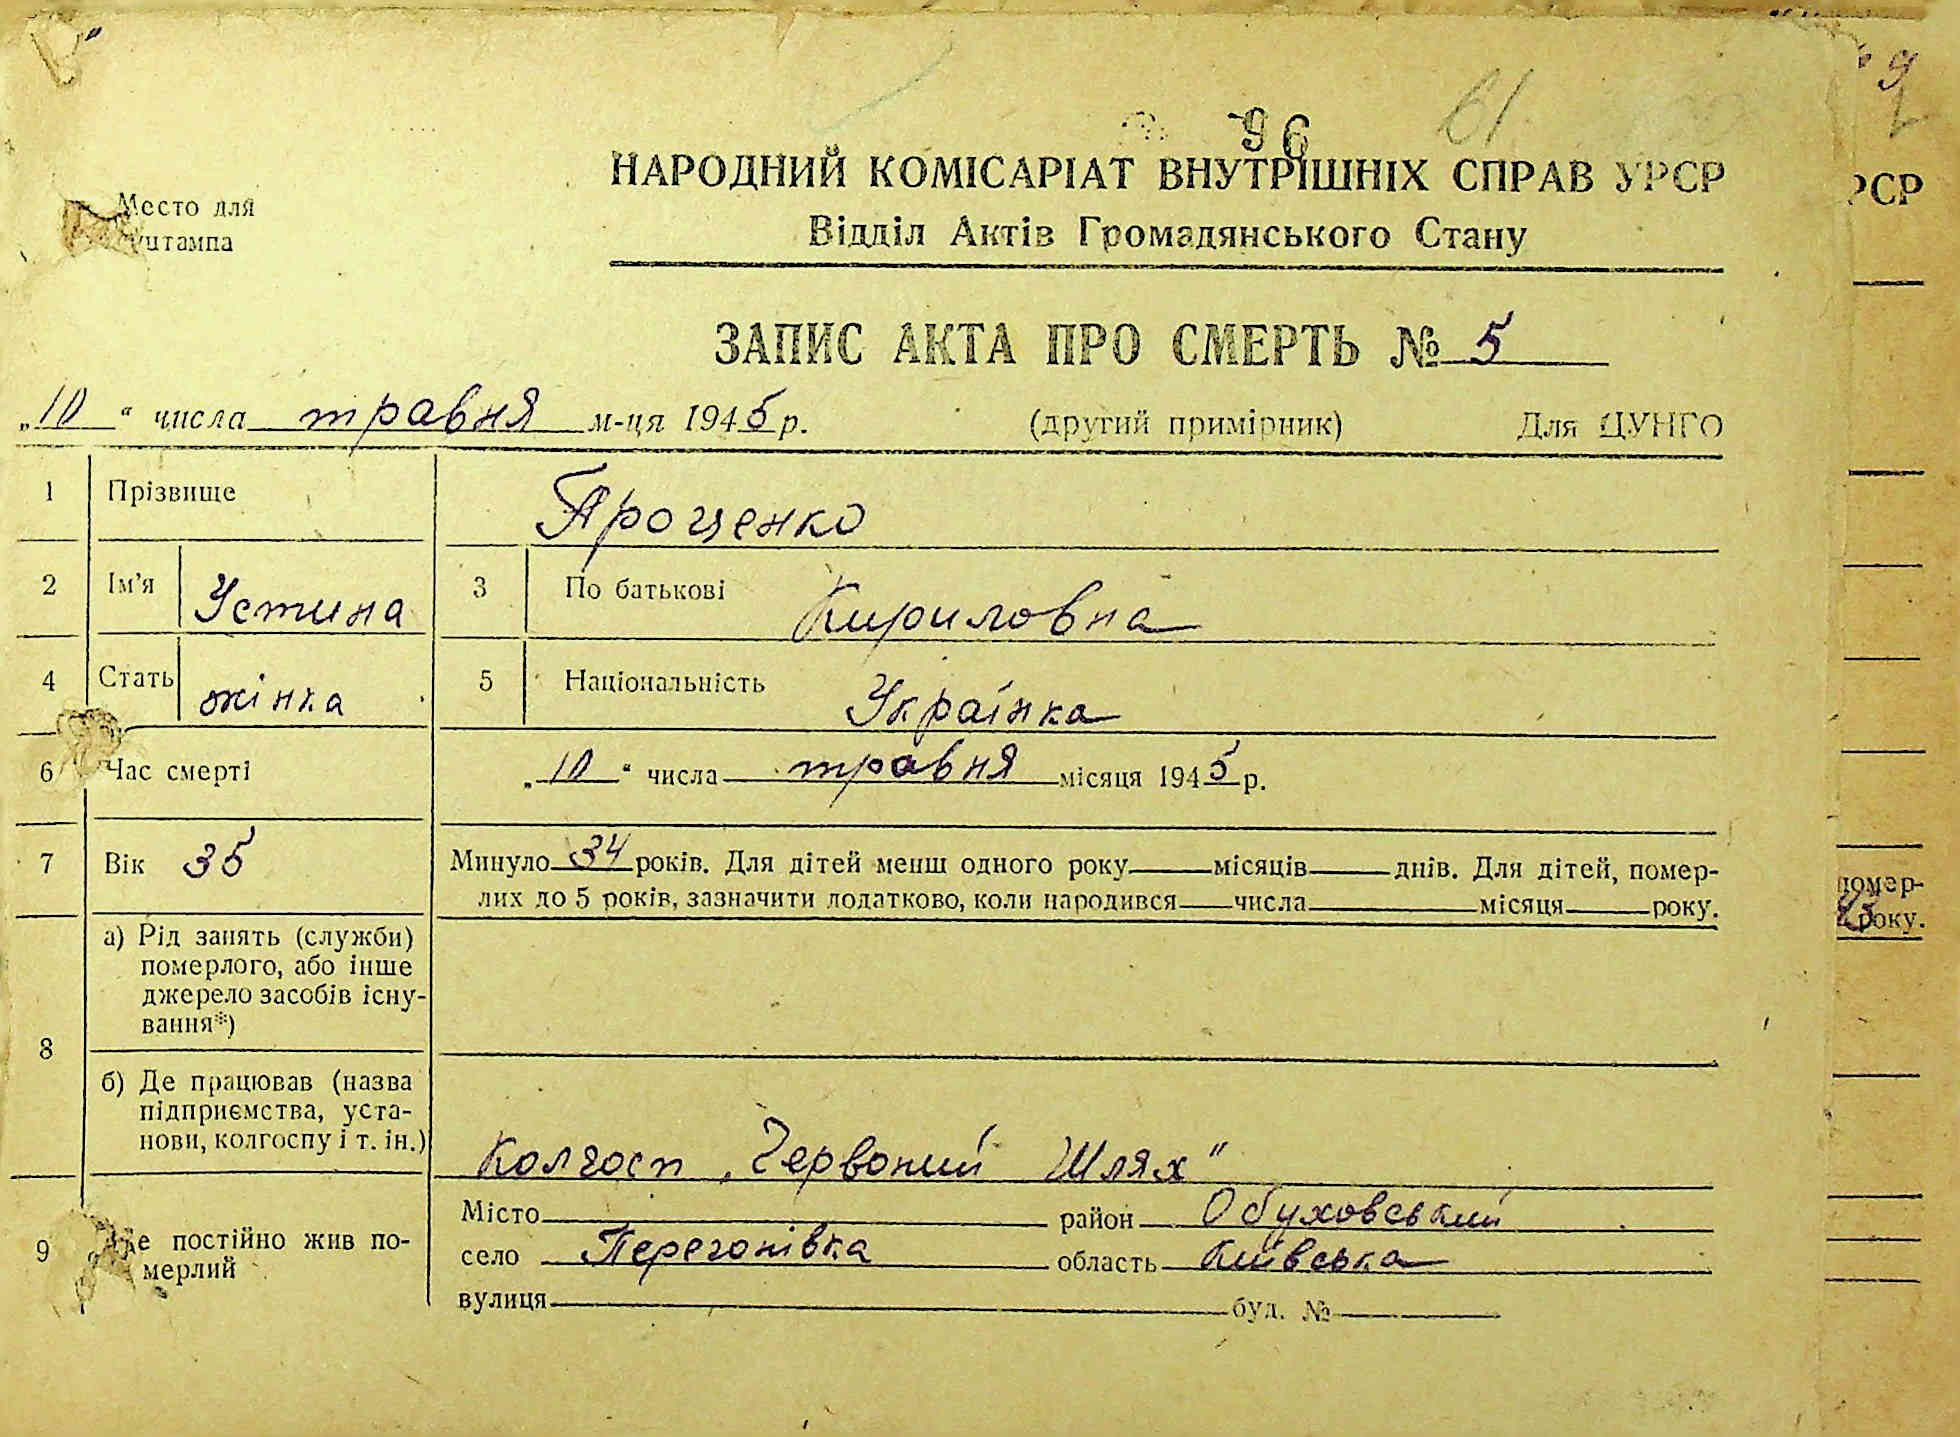 96 61
НАРОДНИЙ КОМІСАРІАТ ВНУТРІШНІХ СПРАВ УРСР
Место для
штампа
Відділ Актів Громадянського Стану
ЗАПИС АКТА ПРО СМЕРТЬ № 5
„10“ числа травня м-ця 1945 р. (другий примірник) Для ЦУНГО
1 Прізвище Проценко
2 Ім'я Устина 3 По батькові Кириловна
4 Стать жінка 5 Національність Українка
6 Час смерті „10“ числа травня місяця 1945 р.
7 Вік 35 Минуло 34 років. Для дітей менш одного року місяців днів. Для дітей, помер-
лих до 5 років, зазначити додатково, коли народився числа місяця року.
8 а) Рід занять (служби)
померлого, або інше
джерело засобів існу-
вання*)
б) Де працював (назва
підприємства, уста-
нови, колгоспу і т. ін.)
Колгосп „Червоний Шлях"
9 Де постійно жив по-
мерлий
Місто район Обуховський
село Перегонівка область Київська
вулиця буд. №
РСР
помер-
року.